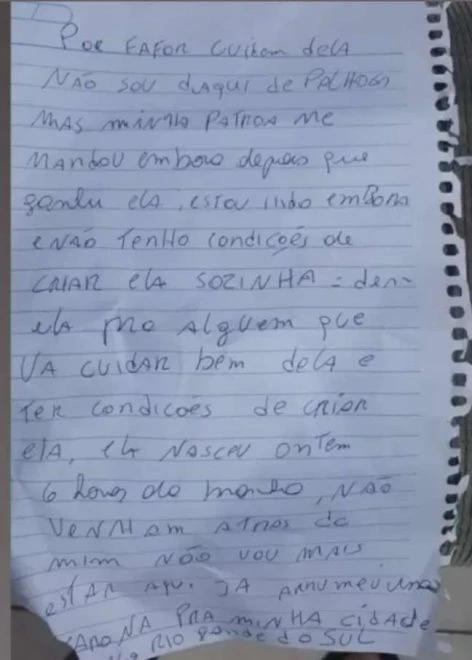 Por FAFOR Cuidam dela
NÃO SOU DAQUI de PALHOÇA
MAS MINHA PATROA Me
MANDOU embora depois que
ganhei elA, estou indo emBORA
e NÃO TENHO condições de
CRIAR elA SOZINHA = dem
ela pRO Alguem que
VA CUIDAR bem delA e
TER condicoēs de CRIAR
elA, elA NASCEU ONTem
6 horas da manha, NÃO
VENHAM ATRAS de
mim NÃO VOU MAIS
estAR AQUI JA ARRUMEI UMA
CARONA PRA MINHA CIDADE
RIO gande do SUL